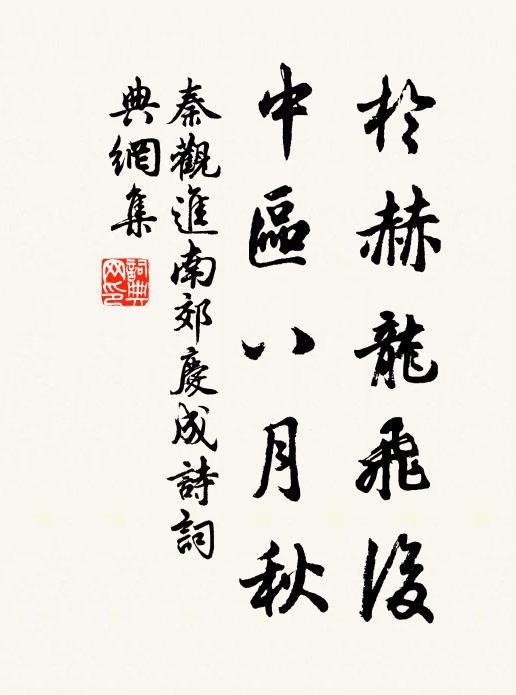 於赫龍飛後
中區八月秋
秦觀進南郊慶成詩詞
典網集
詞典
网印